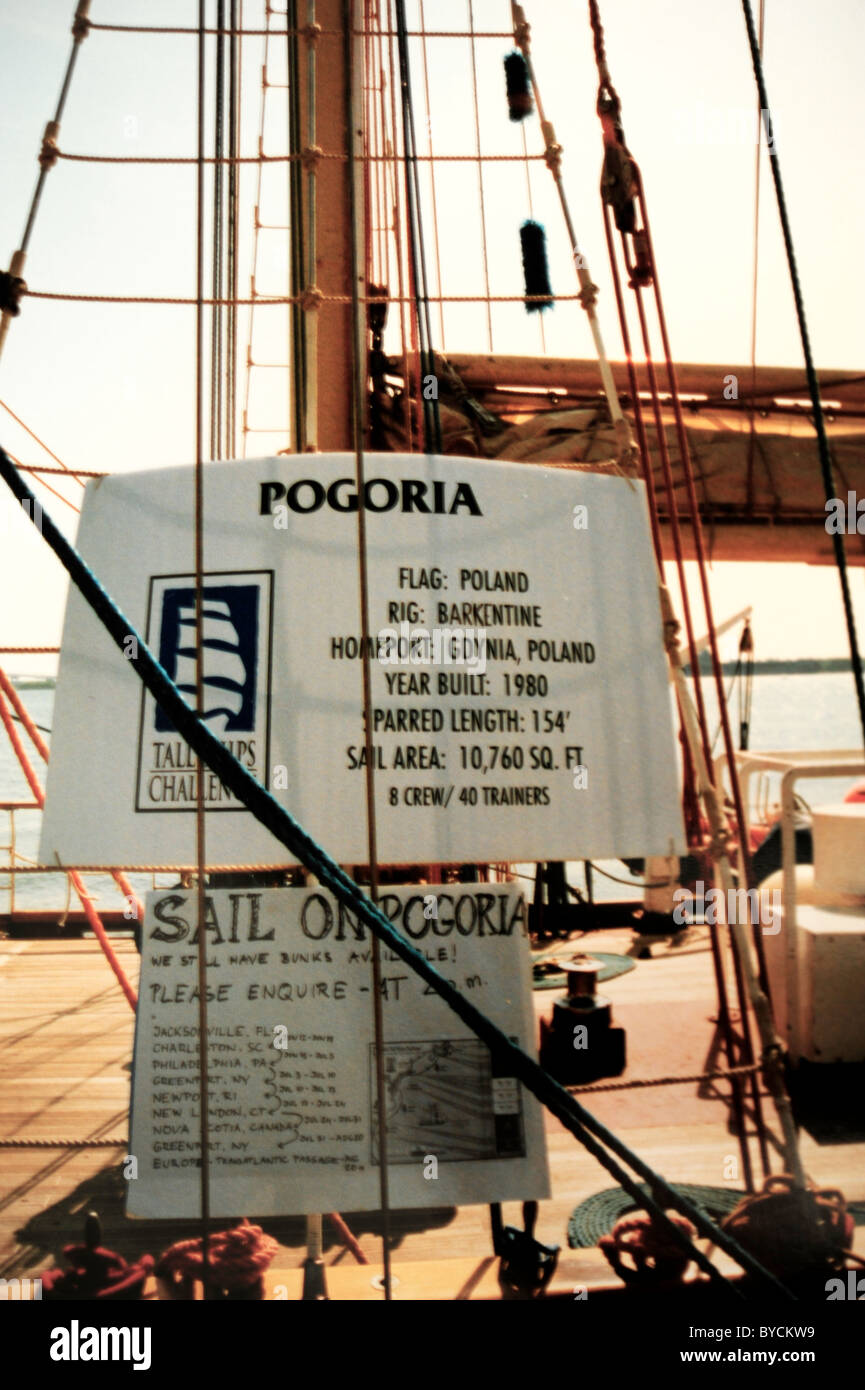 POGORIA
FLAG: POLAND
RIG: BARKENTINE
HOMEPORT: GDYNIA, POLAND
YEAR BUILT: 1980
SPARRED LENGTH: 154'
SAIL AREA: 10,760 SQ. FT
8 CREW/ 40 TRAINERS
TALL SHIPS
CHALLENGE
SAIL ON POGORIA
WE STILL HAVE BUNKS AVAILABLE!
PLEASE ENQUIRE - AT p.m.
JACKSONVILLE, FL
CHARLESTON, SC
PHILADELPHIA, PA
GREENPORT, NY
NEWPORT, RI
NEW LONDON, CT
NOVA SCOTIA, CANADA
GREENPORT, NY
EUROPE - TRANSATLANTIC PASSAGE
alamy
Image ID: BYCKW9
www.alamy.com